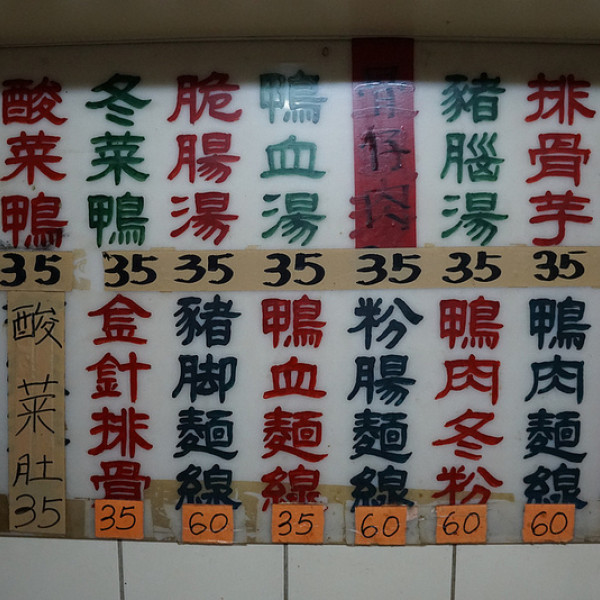 酸菜鴨
35
冬菜鴨
35
脆腸湯
35
鴨血湯
35
35
豬腦湯
35
排骨芋
35
酸菜肚
35
金針排骨
35
豬脚麵線
60
鴨血麵線
35
粉腸麵線
60
鴨肉冬粉
60
鴨肉麵線
60